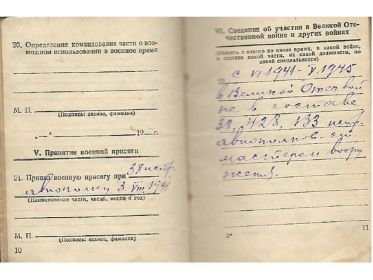 20. Определение командования части о воз-
можном использовании в военное время
М. П.
(Подпись: звание, фамилия)
19 г.
V. Принятие военной присяги
21. Принял военную присягу при 38 истр.
авиополку 3 VIII, 1941
(Наименование части, число, месяц и год)
М. П.
(Подпись: звание, фамилия)
10
VI. Сведения об участии в Великой Оте-
чественной войне и других войнах
(Указать с какого по какое время, в какой войне,
в составе какой части, на какой должности, по
какой специальности)
с VI 1941 - V. 1945
в Великой Отечвой
не в составе
38, 428, 133 истр.
авиополков. ст
мастером воору
жения.
2*
11